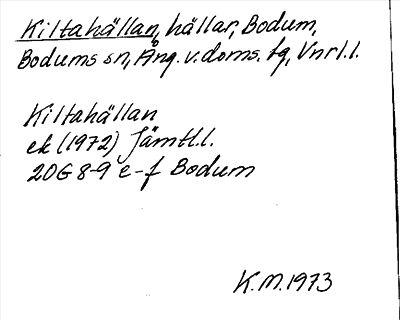 Kiltahällan, hällar, Bodum,
Bodums sn, Ång. v. doms. tg, Vnrl.l.
Kiltahällan
ek (1972) Jämtl.l.
20G 8-9 e-f Bodum
K.M. 1973